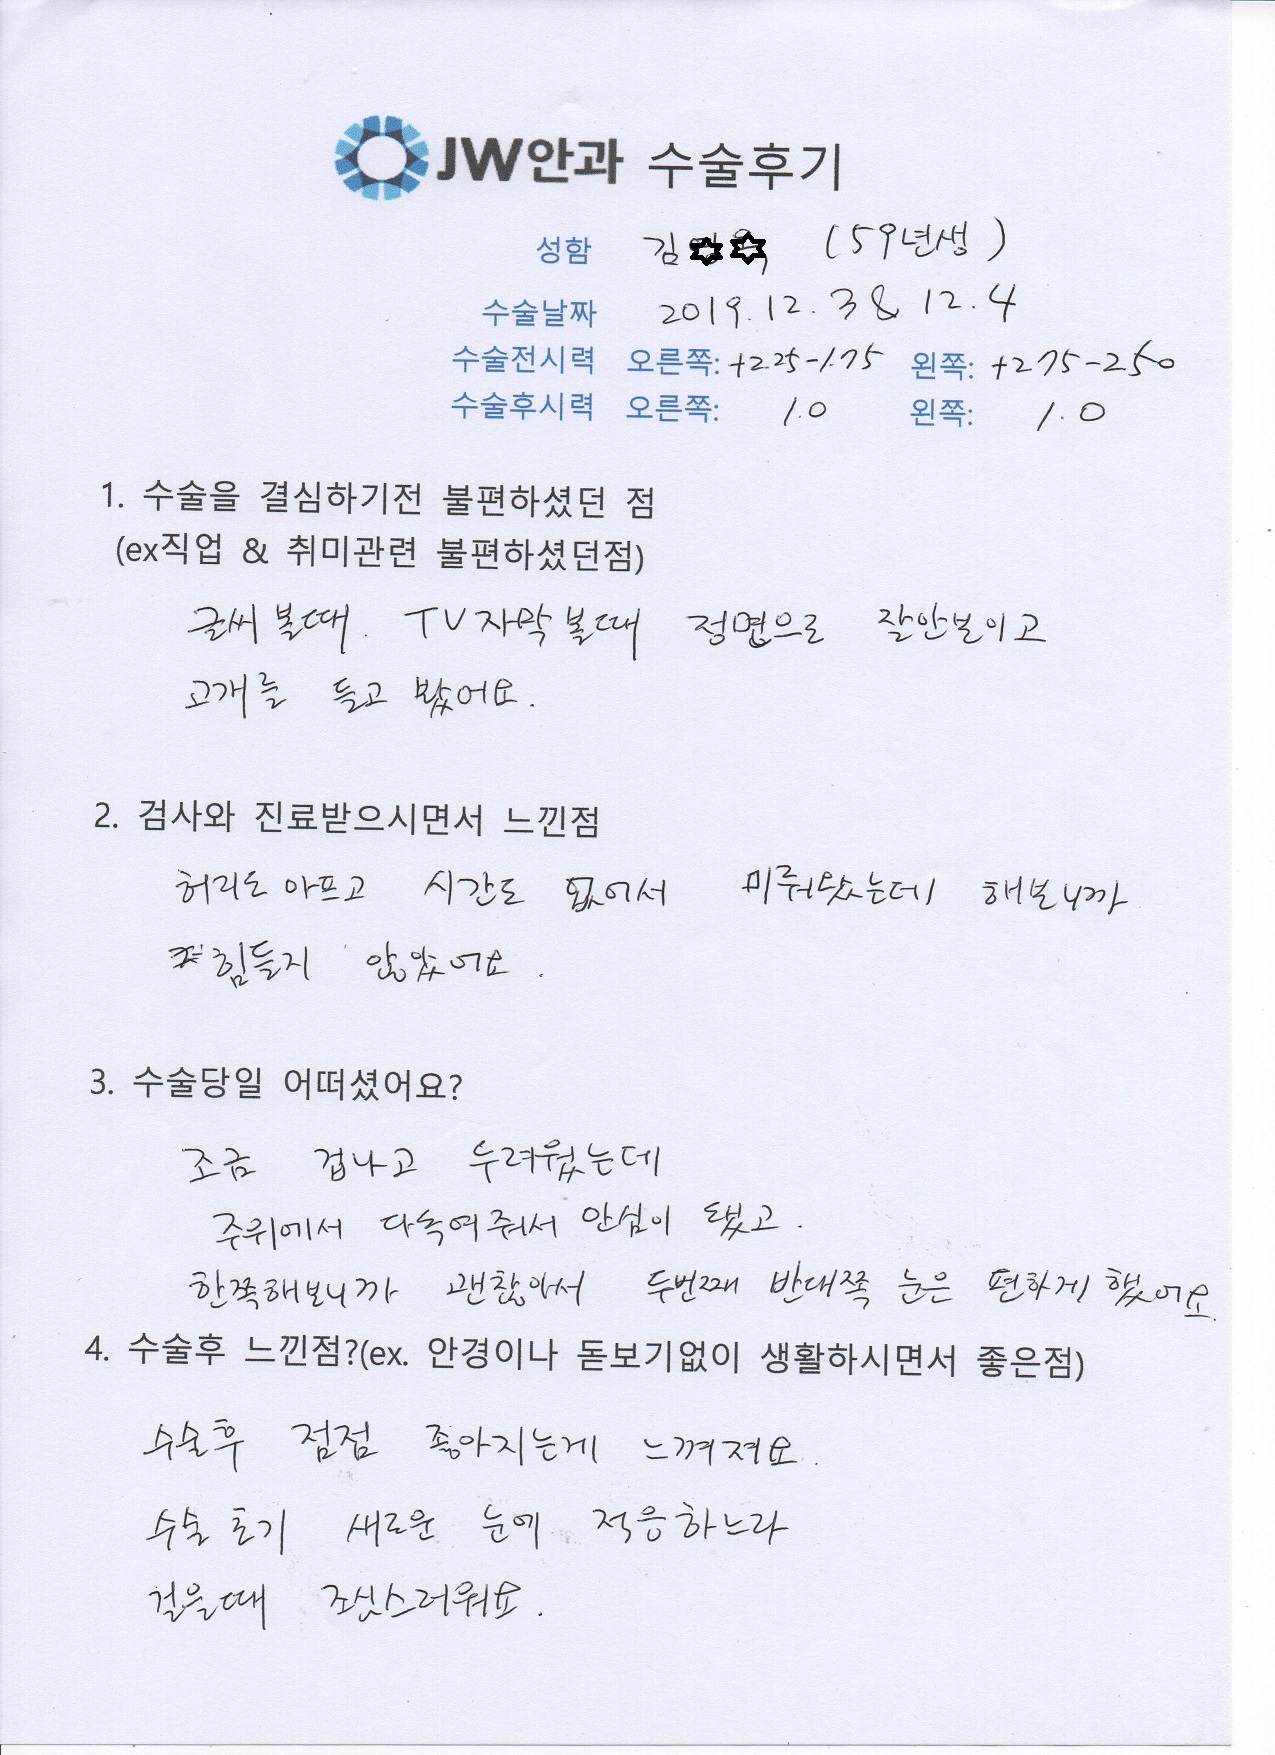 JW안과 수술후기
성함 김 (59년생)
수술날짜 2019. 12. 3 & 12. 4
수술전시력 오른쪽: +2.25-1.75 왼쪽: +275-250
수술후시력 오른쪽: 1.0 왼쪽: 1.0
1. 수술을 결심하기전 불편하셨던 점
(ex직업 & 취미관련 불편하셨던점)
글씨볼때. TV자막볼때 정면으로 잘안보이고
고개를 들고 봤어요.
2. 검사와 진료받으시면서 느낀점
허리도 아프고 시간도 없어서 미뤄왔는데 해보니까
힘들지 않았어요.
3. 수술당일 어떠셨어요?
조금 겁나고 두려웠는데
주위에서 다독여줘서 안심이 됐고.
한쪽해보니까 괜찮아서 두번째 반대쪽 눈은 편하게 했어요.
4. 수술후 느낀점?(ex. 안경이나 돋보기없이 생활하시면서 좋은점)
수술후 점점 좋아지는게 느껴져요.
수술 초기 새로운 눈에 적응하느라
걸을때 조심스러워요.